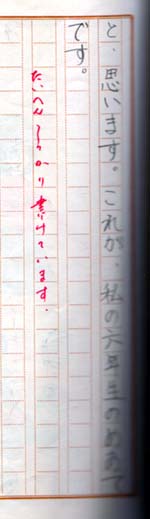 と、思います。これが、私の六年生のめあて
です。
たいへんしっかり書けています。